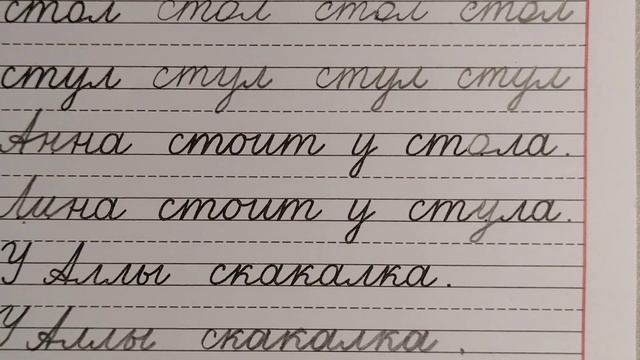 стол стол стол стол
стул стул стул стул
Анна стоит у стола.
Лина стоит у стула.
У Аллы скакалка.
У Аллы скакалка.